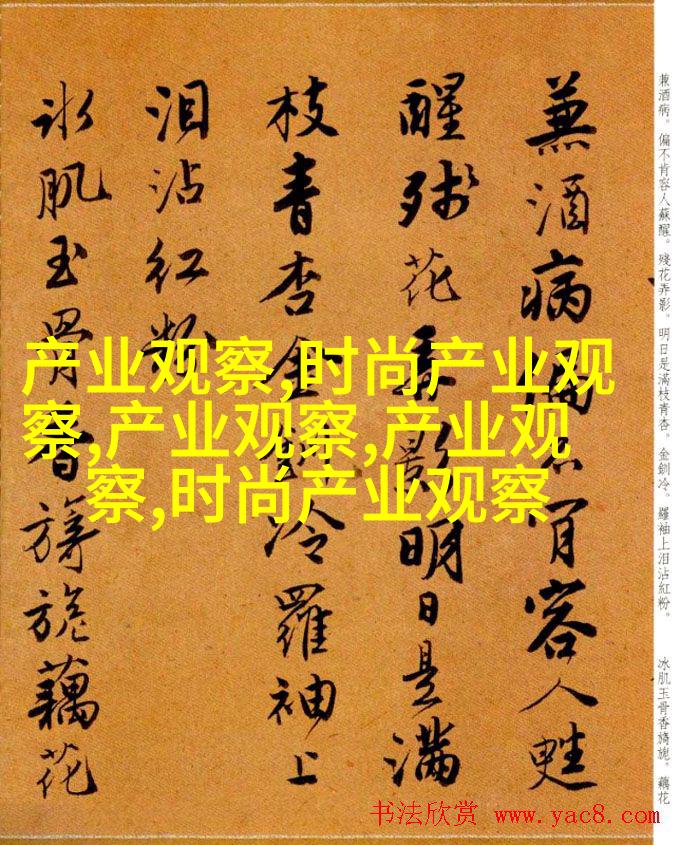 兼酒病偏不肯容人甦
醒殘花弄影明日是滿
枝青杏金釧冷羅袖上
泪沾紅粉
冰肌玉骨香旖旎藕花
产业观察,时尚产业观
察,产业观察,产业观
察,时尚产业观察
兼酒病。偏不肯容人蘇醒。殘花弄影。明日是滿枝青杏。金釧冷。羅袖上泪沾紅粉。
冰肌玉骨香旖旎。藕花
书法欣赏 www.yac8.com